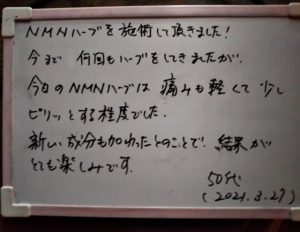 NMNハーブを施術して頂きました!
今まで何回もハーブをしてきましたが、
今日のNMNハーブは痛みも軽くて少し
ピリッとする程度でした。
新しい成分も加わったとのことで、結果が
とても楽しみです。
50代
(2021.3.27)